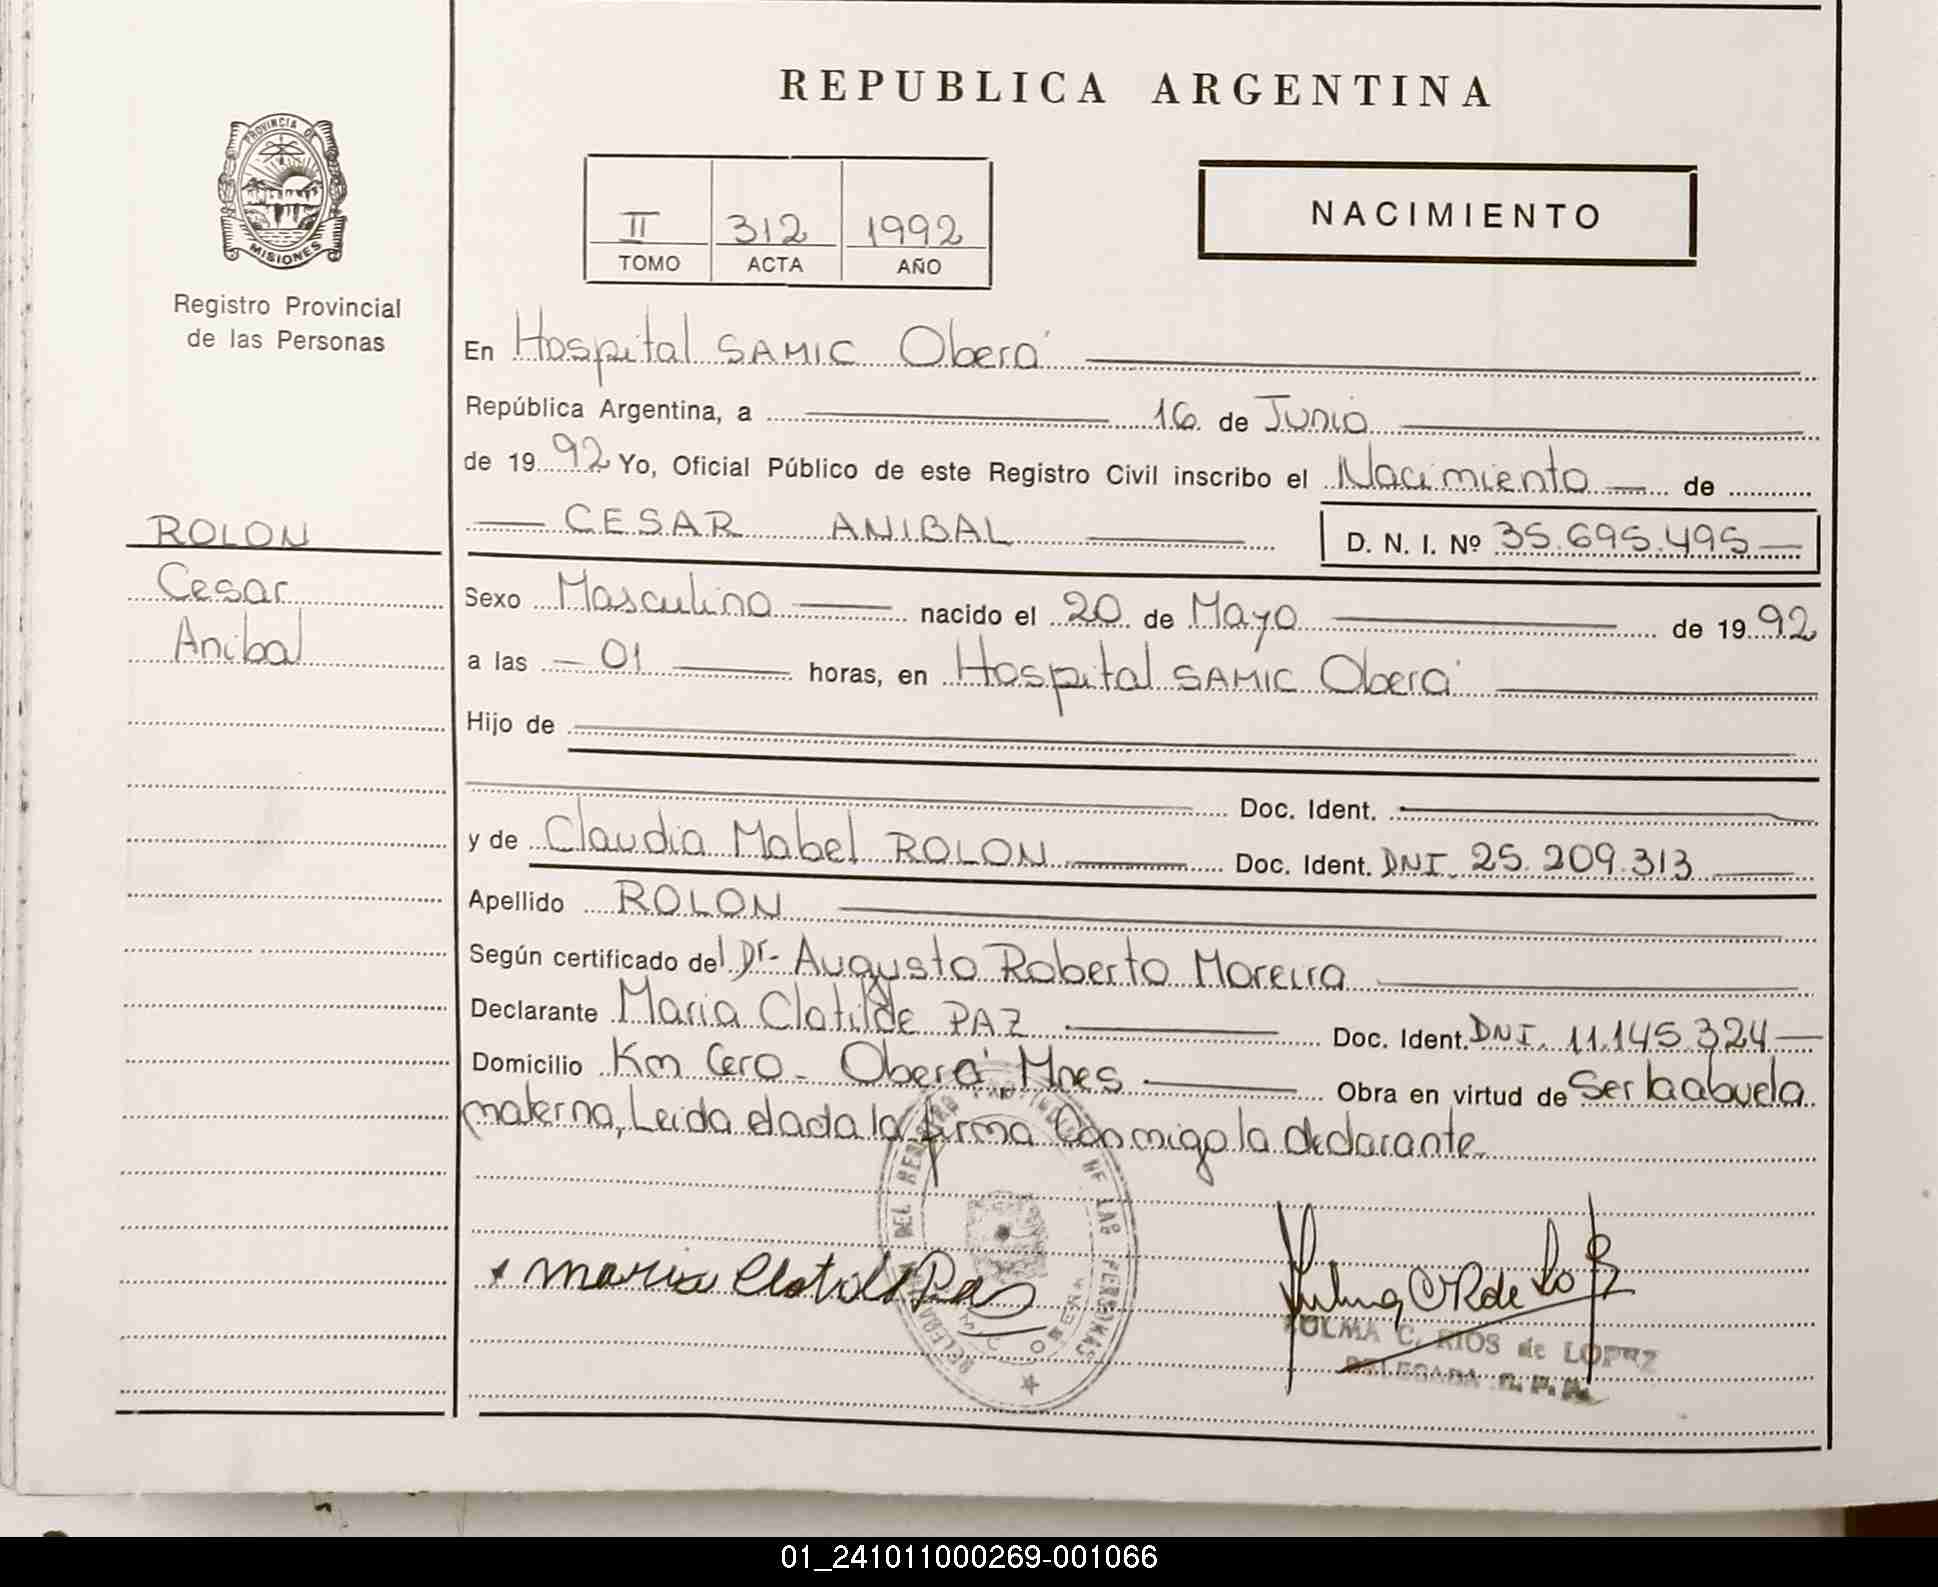 REPUBLICA ARGENTINA
PROVINCIA DE
MISIONES
Registro Provincial
de las Personas
II 312 1992
TOMO ACTA AÑO
NACIMIENTO
En Hospital SAMIC Oberá
República Argentina, a 16 de Junio
de 1992 Yo, Oficial Público de este Registro Civil inscribo el Nacimiento de
ROLON
Cesar
Anibal
CESAR ANIBAL D. N. I. Nº 35.695.495
Sexo Masculino nacido el 20 de Mayo de 1992
a las 01 horas, en Hospital SAMIC Oberá
Hijo de
Doc. Ident.
y de Claudia Mabel ROLON Doc. Ident. DNI. 25.209.313
Apellido ROLON
Según certificado del Dr- Augusto Roberto Moreira
Declarante Maria Clotilde PAZ Doc. Ident. DNI. 11.145.324
Domicilio Km Cero - Oberá, Mnes Obra en virtud de Ser la abuela
materna, Leida el acta la firma Conmigo la declarante.
DEL REGISTRO DE LAS PERSONAS
OBERA
Maria Clotilde Paz
ZULMA C. RIOS de LOPEZ
DELEGADA R. P. P.
01_241011000269-001066